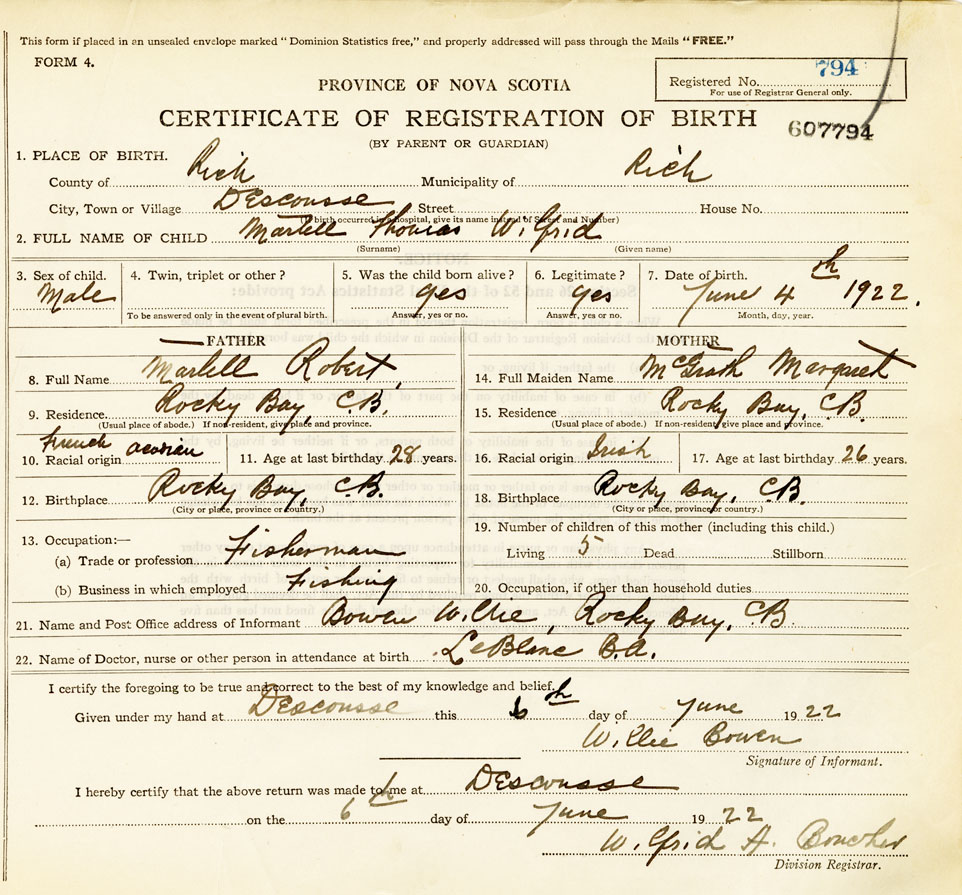 This form if placed in an unsealed envelope marked "Dominion Statistics free," and properly addressed will pass through the Mails "FREE."
FORM 4.
Registered No. 794
For use of Registrar General only.
PROVINCE OF NOVA SCOTIA
CERTIFICATE OF REGISTRATION OF BIRTH
607794
(BY PARENT OR GUARDIAN)
1. PLACE OF BIRTH.
County of Rich Municipality of Rich
City, Town or Village DEscousse Street House No.
(If birth occurred in a hospital, give its name instead of Street and Number)
2. FULL NAME OF CHILD Martell Thomas Wilfrid
(Surname) (Given name)
3. Sex of child. 4. Twin, triplet or other? 5. Was the child born alive? 6. Legitimate? 7. Date of birth.
Male yes yes June 4th 1922.
To be answered only in the event of plural birth. Answer, yes or no. Answer, yes or no. Month, day, year.
FATHER MOTHER
8. Full Name Martell Robert, 14. Full Maiden Name McGrath Margaret
9. Residence Rocky Bay, C.B. 15. Residence Rocky Bay, CB
(Usual place of abode.) If non-resident, give place and province. (Usual place of abode.) If non-resident, give place and province.
10. Racial origin French acadian 11. Age at last birthday 28 years. 16. Racial origin Irish 17. Age at last birthday 26 years.
12. Birthplace Rocky Bay, C.B. 18. Birthplace Rocky Bay, CB
(City or place, province or country.) (City or place, province or country.)
13. Occupation:— 19. Number of children of this mother (including this child.)
(a) Trade or profession Fisherman Living 5 Dead Stillborn
(b) Business in which employed Fishing 20. Occupation, if other than household duties
21. Name and Post Office address of Informant Bowen Willie, Rocky Bay, CB
22. Name of Doctor, nurse or other person in attendance at birth LeBlanc B.A.
I certify the foregoing to be true and correct to the best of my knowledge and belief.
Given under my hand at DEscousse this 6th day of June 1922
Willie Bowen
Signature of Informant.
I hereby certify that the above return was made to me at DEscousse
on the 6th day of June 1922
Wilfrid A. Boucher
Division Registrar.